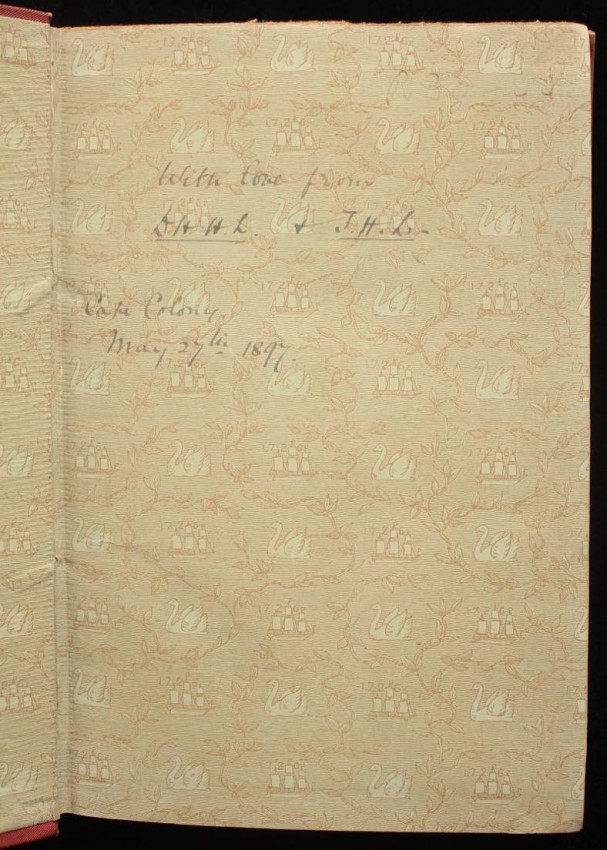 With love from
D.H.H.L. & J.H.L.
Cape Colony.
May 27th 1897.